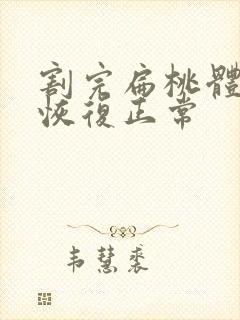 割完扁桃體
恢復正常
韦慧裘